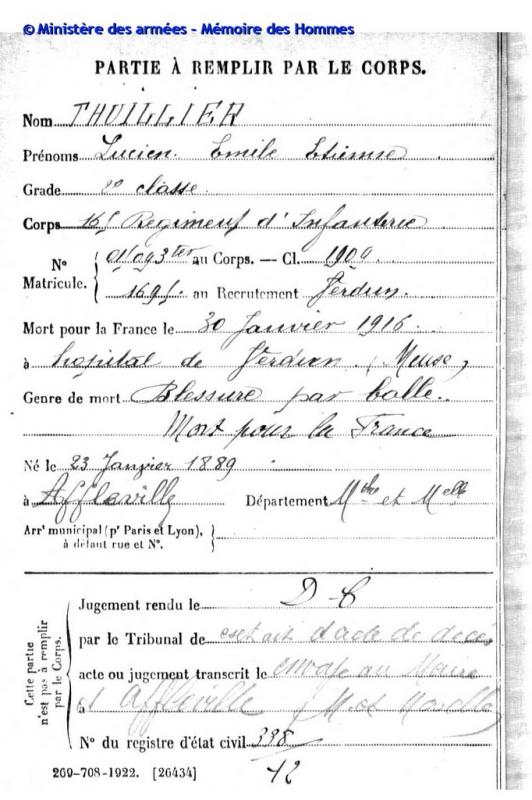 © Ministère des armées - Mémoire des Hommes
PARTIE À REMPLIR PAR LE CORPS.
Nom THUILLIER
Prénoms Lucien Emile Etienne
Grade 2e classe
Corps Régiment d'Infanterie
N° Matricule. au Corps. — Cl. 1909
au Recrutement Verdun
Mort pour la France le 30 Janvier 1916
à hopital de Verdun (Meuse)
Genre de mort Blessure par balle.
Mort pour la France
Né le 23 Janvier 1889
à Affleville Département Mthe et Melle
Arrt municipal (pr Paris et Lyon),
à défaut rue et N°.
Cette partie
n'est pas à remplir
par le Corps.
Jugement rendu le
par le Tribunal de extrait d'acte de décès
acte ou jugement transcrit le envoyé au Maire
à Affleville
N° du registre d'état civil 398
12
269-708-1922. [26434]